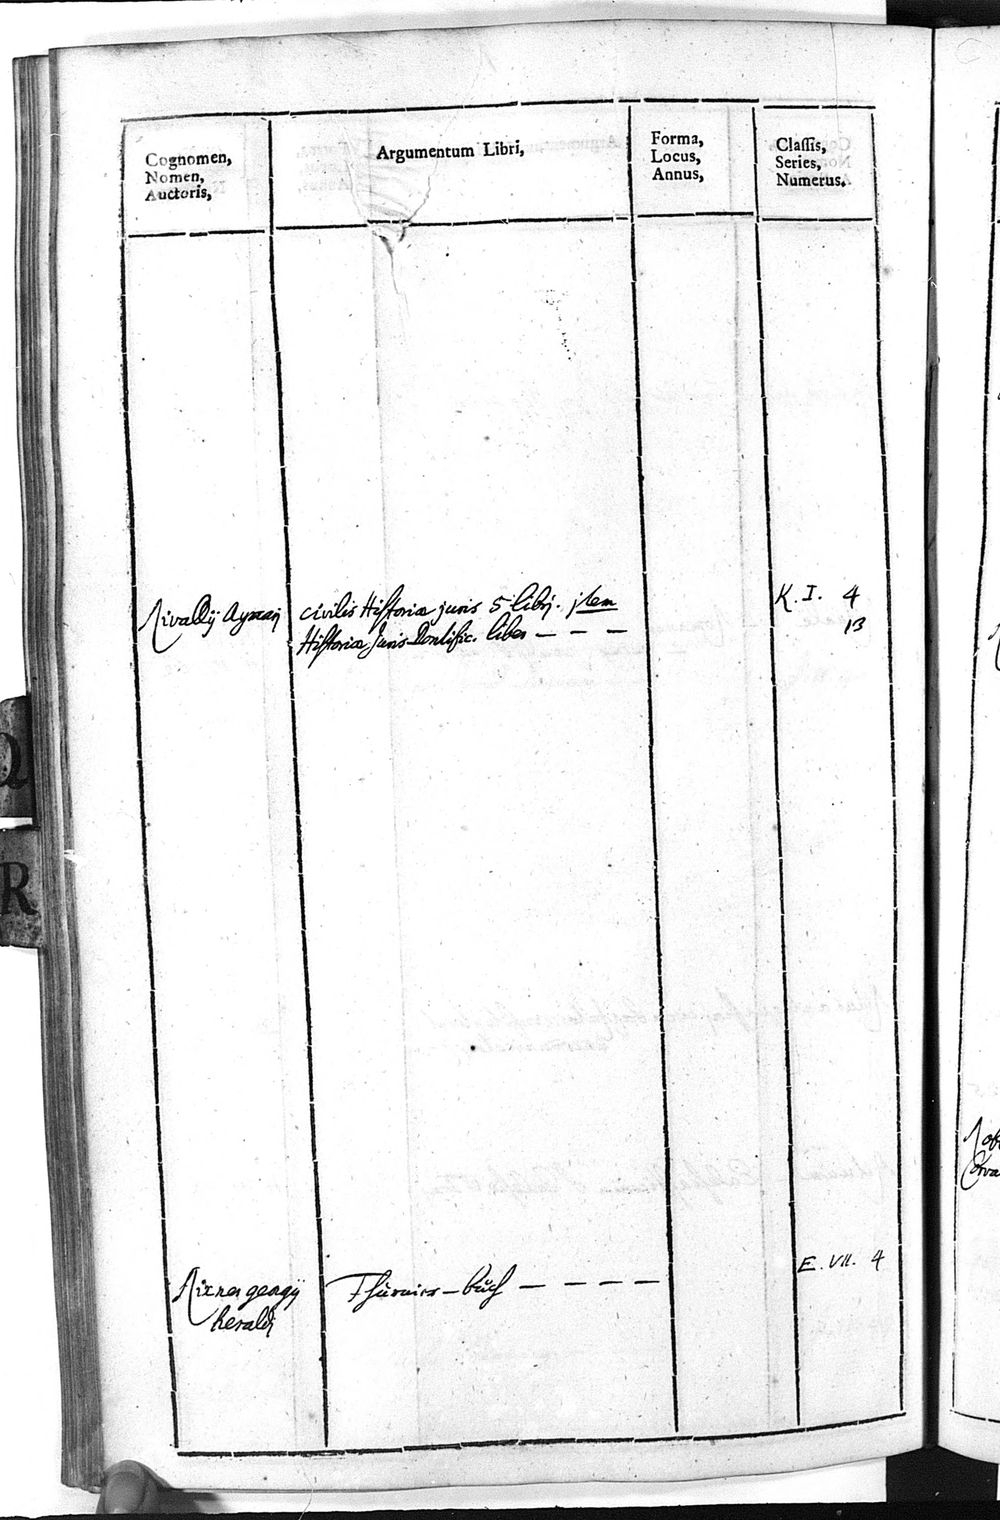 Cognomen,
Nomen,
Auctoris,
Argumentum Libri,
Forma,
Locus,
Annus,
Classis,
Series,
Numerus.
Rivallij Aymari
civilis Historiæ juris 5 libri. jtem
Historiæ Juris Pontific. liber – – –
K. I. 4
13
Rixner georgij
heraldi
Thurnier – buch – – – –
E. VII. 4
Q
R